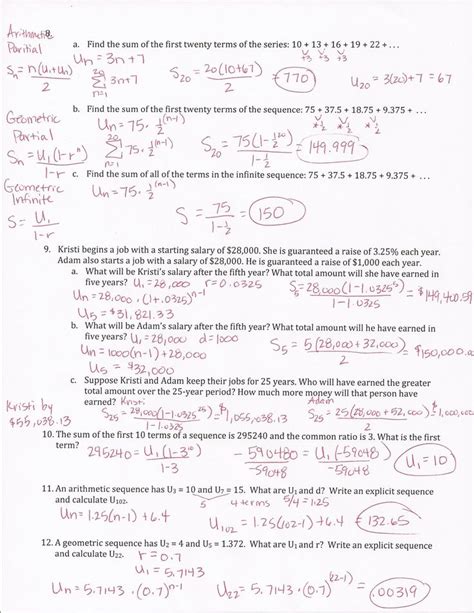 Arithmetic 8.
Paritial
a. Find the sum of the first twenty terms of the series: 10 + 13 + 16 + 19 + 22 + . . .
+3 +3 +3
Un = 3n+7
Sn = n(U1+Un) / 2
20 Σ n=1 3n+7
S20 = 20(10+67) / 2 = 770
U20 = 3(20)+7 = 67
b. Find the sum of the first twenty terms of the sequence: 75 + 37.5 + 18.75 + 9.375 + . . .
Geometric
Partial
Un = 75 · 1/2^(n-1)
*1/2 *1/2
Sn = U1(1-r^n) / 1-r
20 Σ n=1 75 · 1/2^(n-1)
S20 = 75(1-1/2^20) / 1-1/2 = 149.999
c. Find the sum of all of the terms in the infinite sequence: 75 + 37.5 + 18.75 + 9.375 + . . .
Geometric
Infinite
Un = 75 · 1/2^(n-1)
S = U1 / 1-r
S = 75 / 1-1/2 = 150
9. Kristi begins a job with a starting salary of $28,000. She is guaranteed a raise of 3.25% each year.
Adam also starts a job with a salary of $28,000. He is guaranteed a raise of $1,000 each year.
a. What will be Kristi's salary after the fifth year? What total amount will she have earned in
five years? U1 = 28,000 r = 0.0325
Un = 28,000 · (1+.0325)^n-1
S5 = 28,000(1-1.0325^5) / 1-1.0325 = $149,400.59
U5 = $31,821.33
b. What will be Adam's salary after the fifth year? What total amount will he have earned in
five years? U1 = 28,000 d = 1000
Un = 1000(n-1) + 28,000
S5 = 5(28,000 + 32,000) / 2 = $150,000.00
U5 = $32,000
c. Suppose Kristi and Adam keep their jobs for 25 years. Who will have earned the greater
total amount over the 25-year period? How much more money will that person have
earned? Kristi
Adam
Kristi by
$55,038.13
S25 = 28,000(1-1.0325^25) / 1-1.0325 = $1,055,038.13
S25 = 25(28,000 + 52,000) / 2
10. The sum of the first 10 terms of a sequence is 295240 and the common ratio is 3. What is the first
term?
295240 = U1(1-3^10) / 1-3
-590480 / -59048 = U1(-59048) / -59048
U1 = 10
11. An arithmetic sequence has U3 = 10 and U7 = 15. What are U1 and d? Write an explicit sequence
and calculate U102.
5
4 terms 5/4 = 1.25
Un = 1.25(n-1) + 6.4
U102 = 1.25(102-1) + 6.4 = 132.65
12. A geometric sequence has U2 = 4 and U5 = 1.372. What are U1 and r? Write an explicit sequence
and calculate U22.
r = 0.7
U1 = 5.7143
Un = 5.7143 · (0.7)^n-1
U22 = 5.7143 · (0.7)^(22-1) = .00319